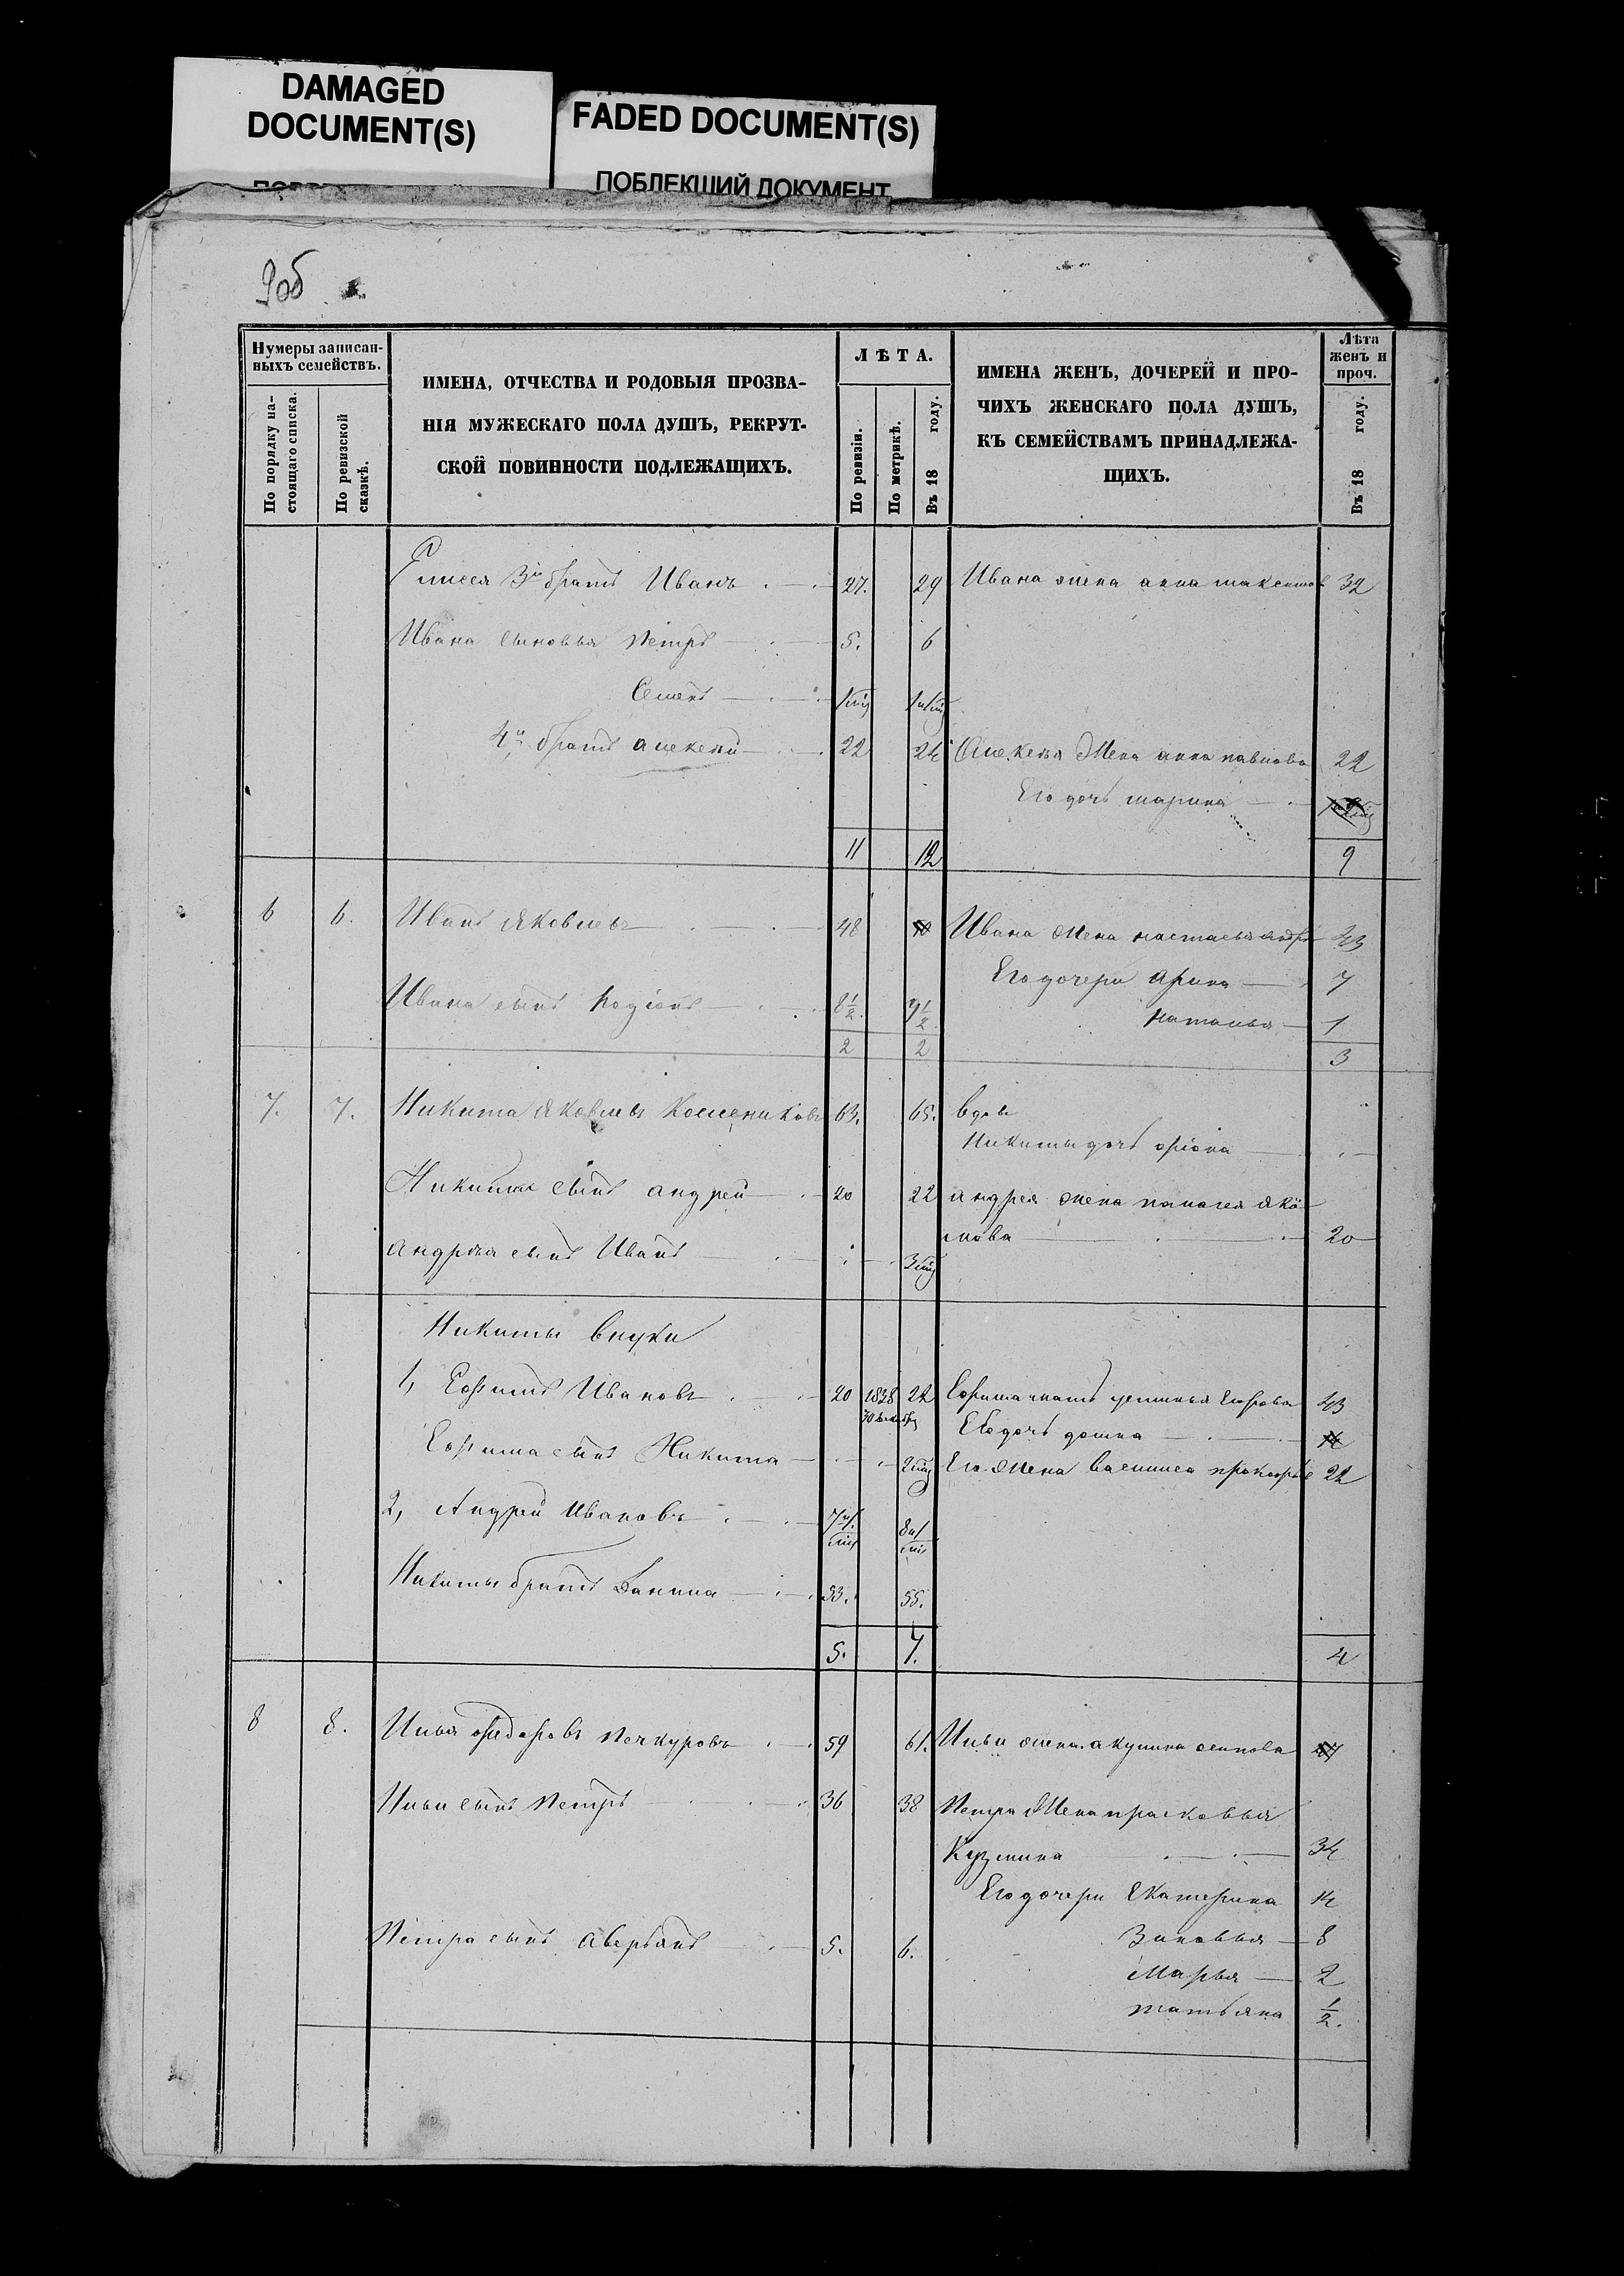 DAMAGED
DOCUMENT(S)
FADED DOCUMENT(S)
ПОБЛЕКШИЙ ДОКУМЕНТ
9об
Нумеры записан-
ныхъ семействъ.
По порядку на-
стоящаго списка.
По ревизской
сказкѣ.
ИМЕНА, ОТЧЕСТВА И РОДОВЫЯ ПРОЗВА-
НІЯ МУЖЕСКАГО ПОЛА ДУШЪ, РЕКРУТ-
СКОЙ ПОВИННОСТИ ПОДЛЕЖАЩИХЪ.
ЛѢТА.
По ревизіи.
По метрикѣ.
Въ 18 году.
ИМЕНА ЖЕНЪ, ДОЧЕРЕЙ И ПРО-
ЧИХЪ ЖЕНСКАГО ПОЛА ДУШЪ,
КЪ СЕМЕЙСТВАМЪ ПРИНАДЛЕЖА-
ЩИХЪ.
Лѣта
женъ и
проч.
Въ 18 году.
Елисея 3й братъ Иванъ 27. 29 Ивана жена анна 32
Ивана сыновья Петръ 5. 6
Семенъ
4й братъ алексей 22 24 Алексея жена анна павлова 22
Его дочь марина
11 12 9
6 6. Иванъ Яковлевъ 48 Ивана жена настасья 43
Его дочери арина 7
Ивана сынъ Родіонъ 8½. 9½. наталья 1
2 2 3
7. 7. Никита Яковлевъ 63. 65. вдовъ
Никиты дочь
Никиты сынъ андрей 20 22 андрея жена палагея яко
андрея сынъ Иванъ влева 20
Никиты внуки
1, Ефимъ Ивановъ 20 1828 22 Ефима мать Егорова 43
Его дочь домна
Ефима сынъ Никита Его жена василиса 22
2, Андрей Ивановъ
Никиты братъ Данила 53. 55.
5. 7. 4
8 8. Илья Федоровъ Печкуровъ 59 61. Ильи жена акулина осипова
Ильи сынъ Петръ 36 38 Петра жена прасковья
Кузмина 34
Его дочери Екатерина 14
Петра сынъ аверьянъ 5. 6. Зиновья 8
Марья 2
татьяна ½.